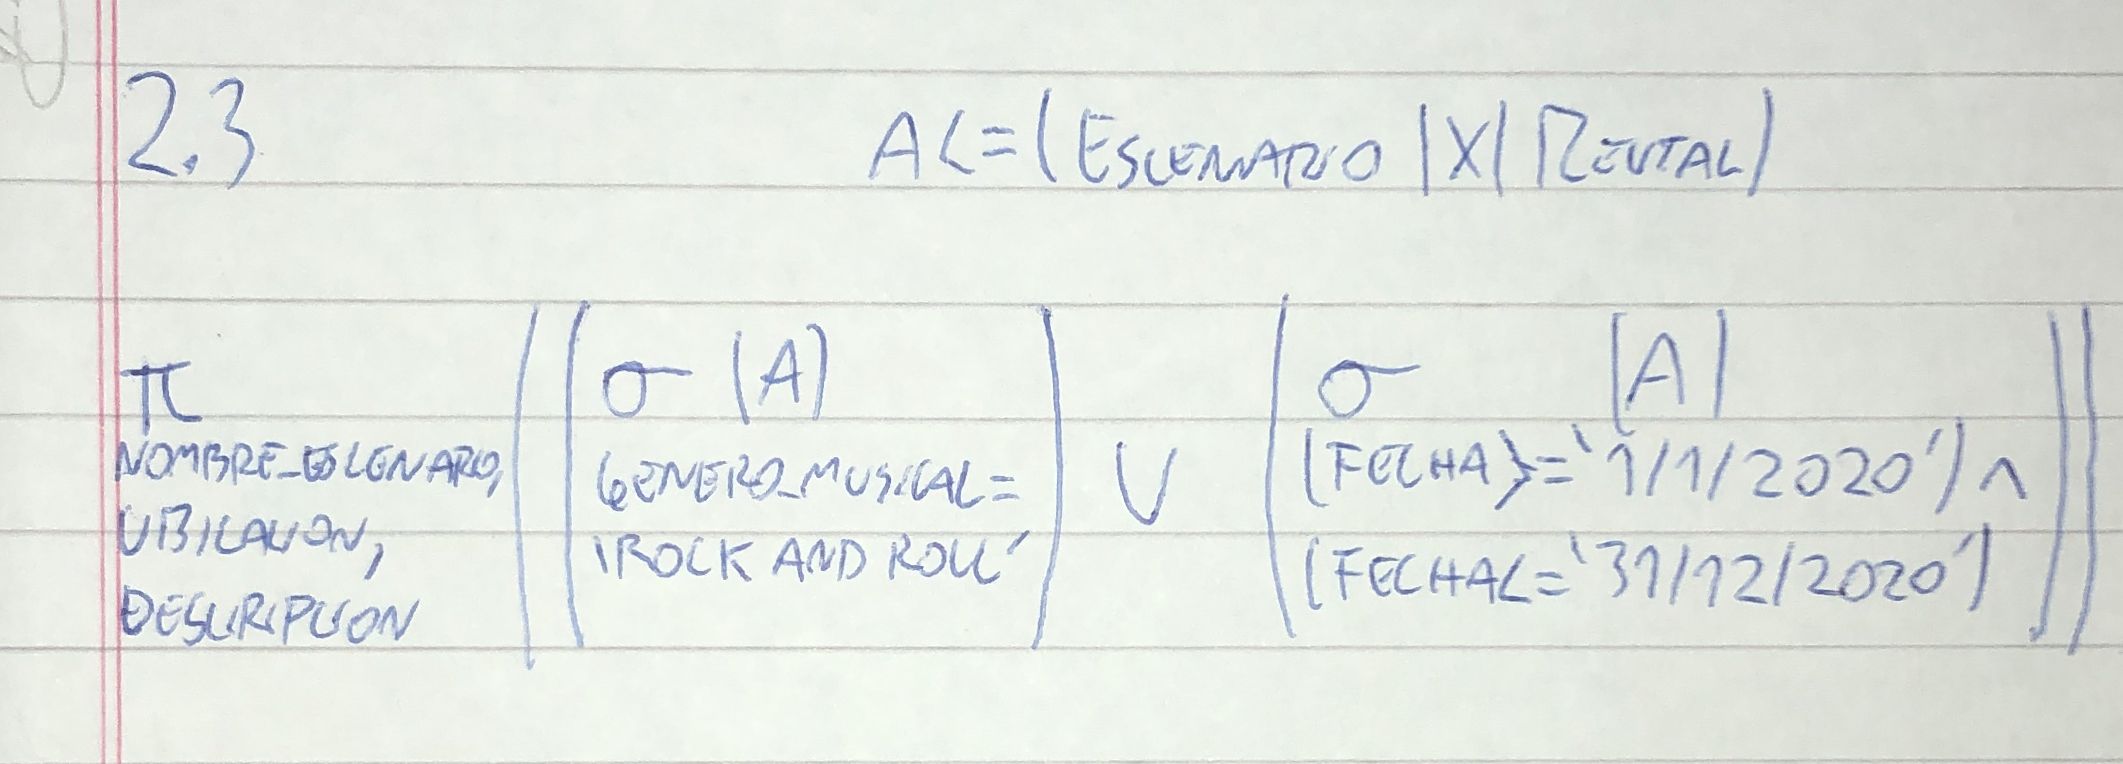 2.3
A<=(ESCENARIO |X| RECITAL)
π ((σ (A)) ∪ (σ (A)))
NOMBRE_ESCENARIO,
UBICACION,
DESCRIPCION
GENERO_MUSICAL=
'ROCK AND ROLL'
(FECHA>='1/1/2020') ^
(FECHA<='31/12/2020')